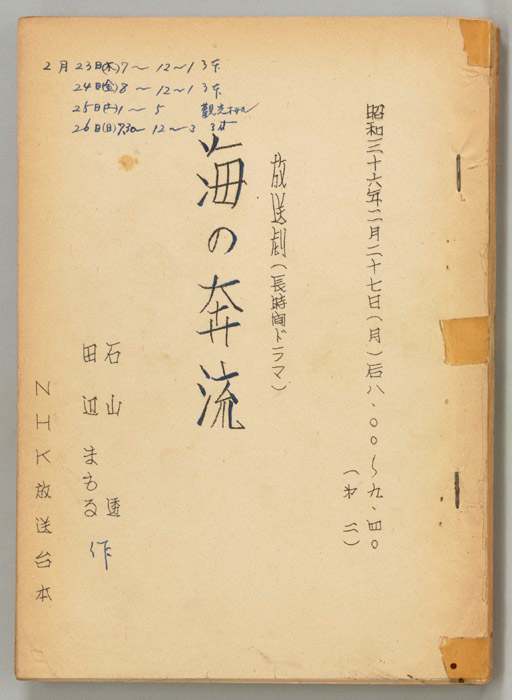 昭和三十六年二月二十七日(月)后八.〇〇~九.四〇
(オ二)
放送劇(長時間ドラマ)
海の奔流
石山 透
田辺 まもる 作
NHK放送台本
2月 23日(木)7~ 12~1 3st
24日(金)8~ 12~1 3st
25日(土)1~5 観光ホテル
26日(日)9.30~ 12~3 3st